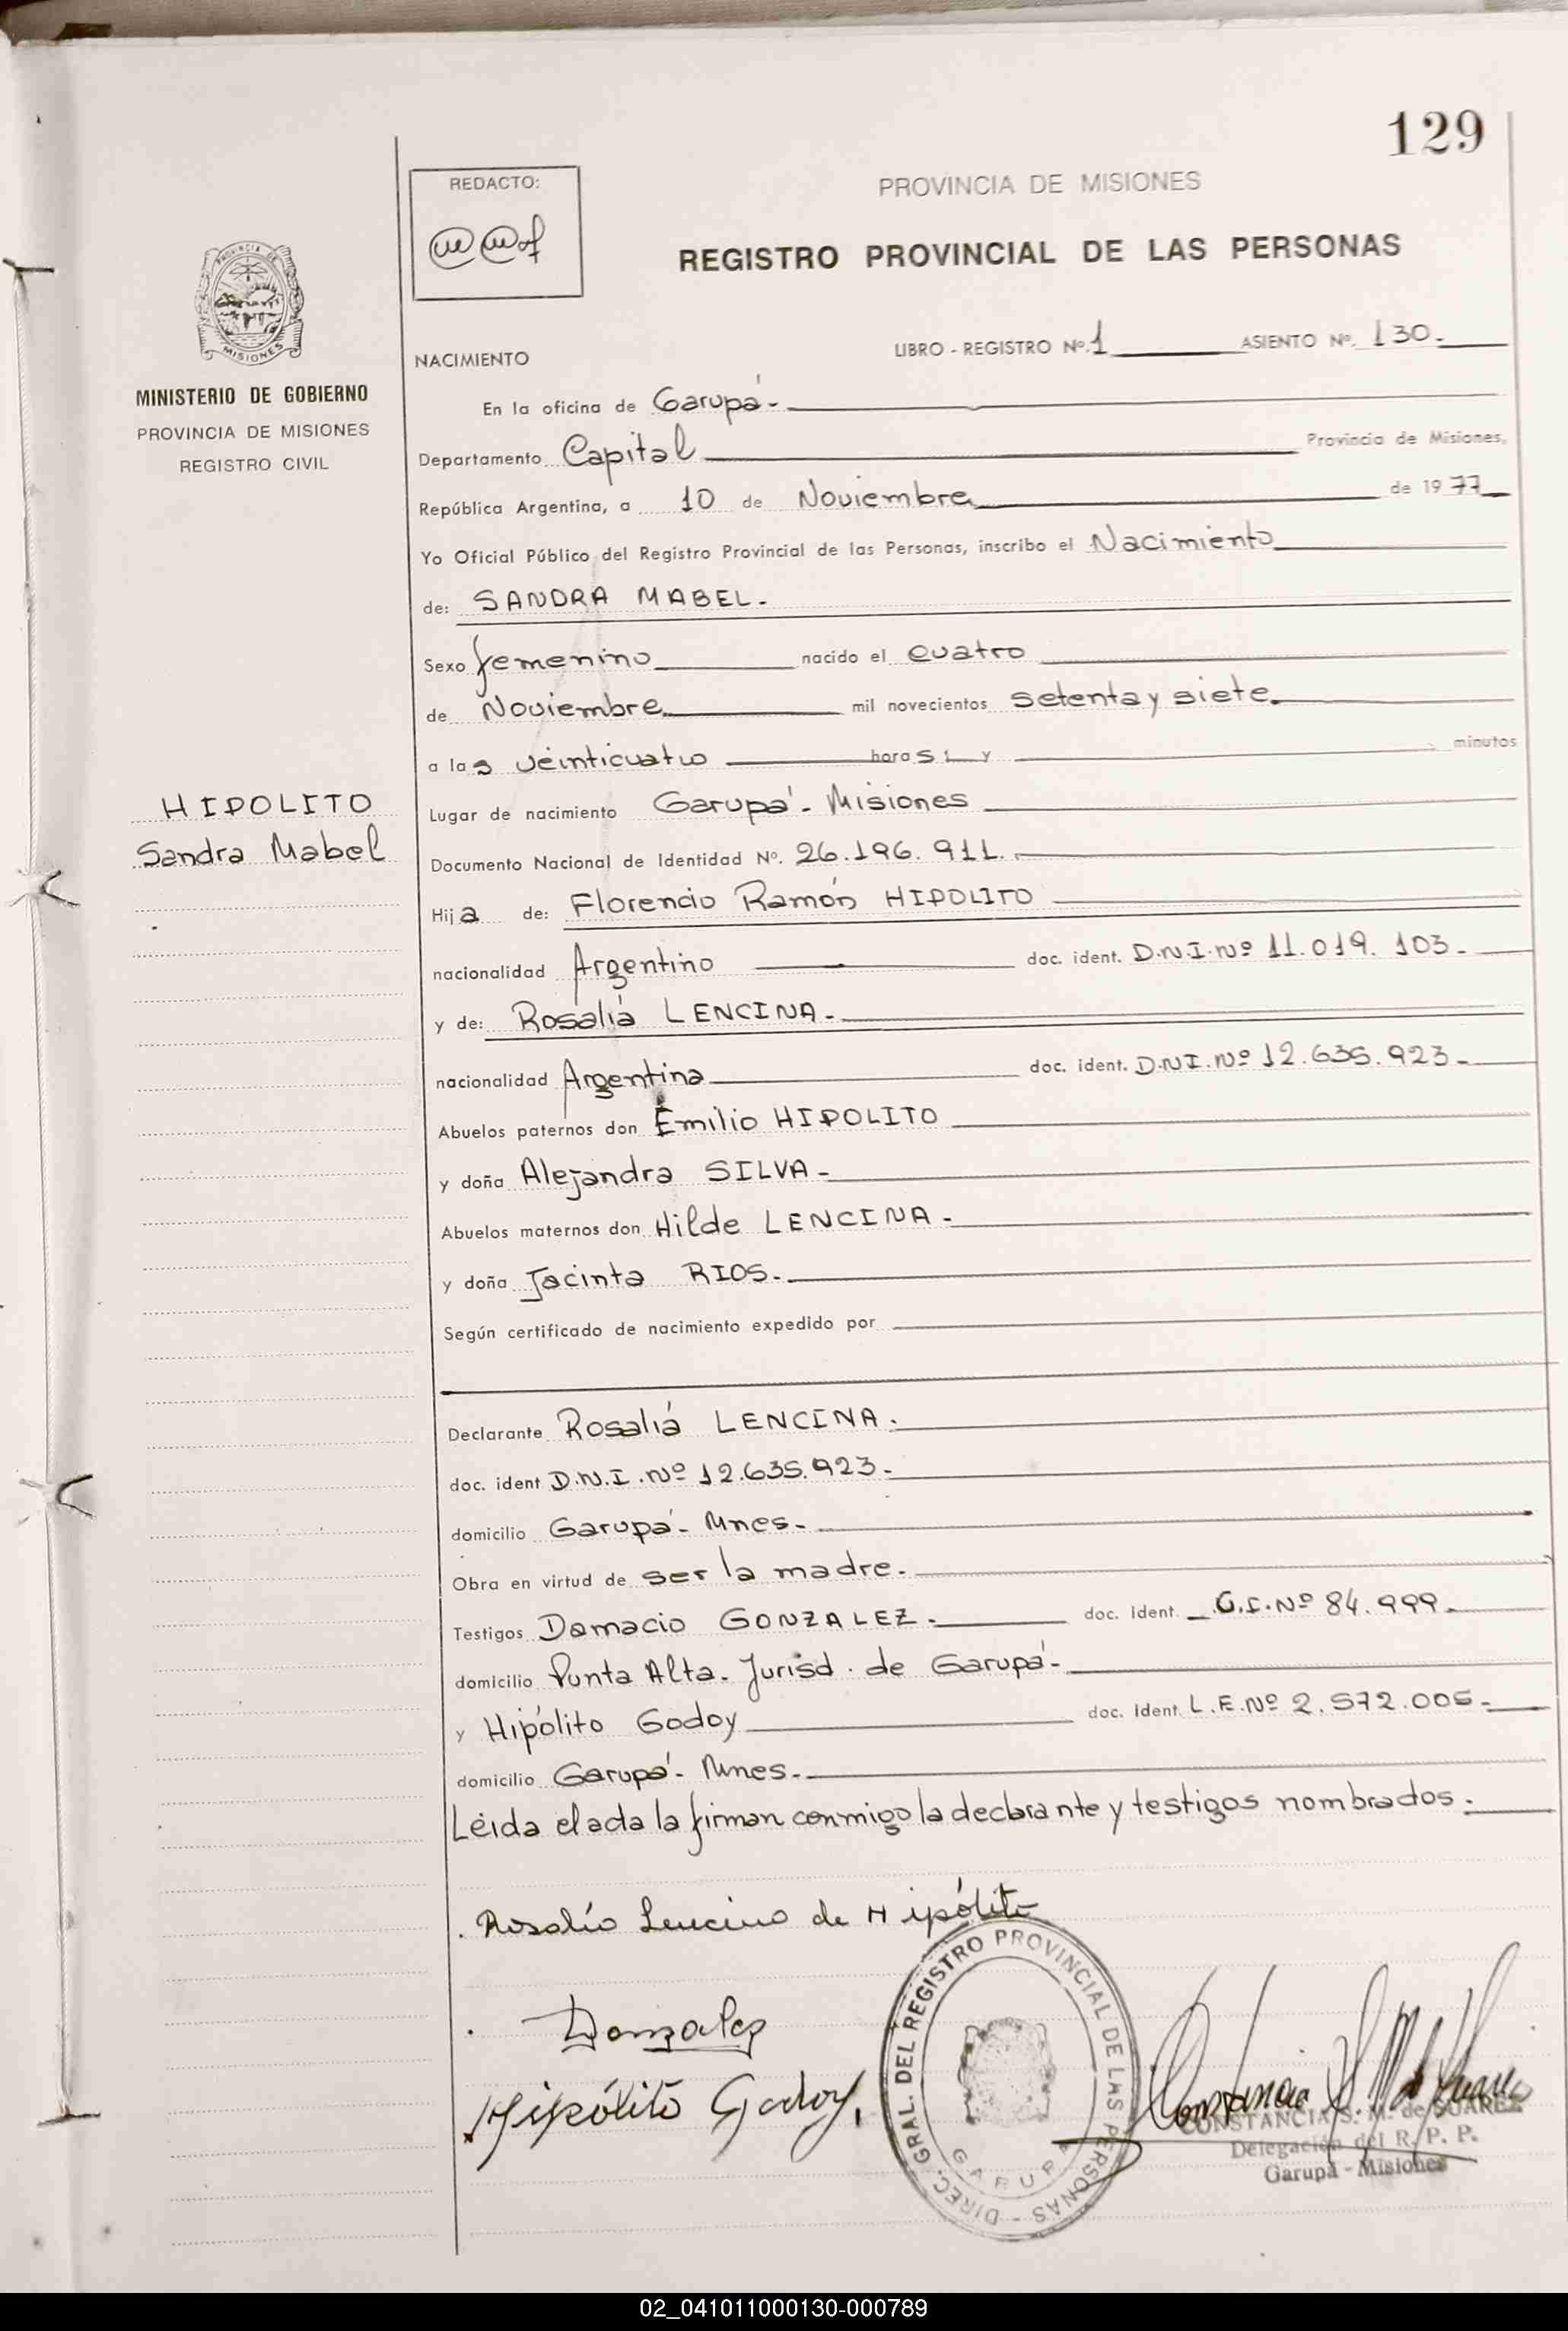 129
REDACTO:
PROVINCIA DE MISIONES
REGISTRO PROVINCIAL DE LAS PERSONAS
PROVINCIA DE
MISIONES
MINISTERIO DE GOBIERNO
PROVINCIA DE MISIONES
REGISTRO CIVIL
NACIMIENTO
LIBRO - REGISTRO Nº. 1 ASIENTO Nº. 130.
En la oficina de Garupá -
Departamento Capital Provincia de Misiones,
República Argentina, a 10 de Noviembre de 1977
Yo Oficial Público del Registro Provincial de las Personas, inscribo el Nacimiento
de: SANDRA MABEL.
Sexo femenino nacido el cuatro
de Noviembre mil novecientos setenta y siete.
a las veinticuatro horas y minutos
HIPOLITO
Sandra Mabel
Lugar de nacimiento Garupá - Misiones
Documento Nacional de Identidad Nº. 26.196.911.
Hija de: Florencio Ramón HIPOLITO
nacionalidad Argentino doc. ident. D.N.I. Nº 11.019.103-
y de: Rosalía LENCINA.
nacionalidad Argentina doc. ident. D.N.I. Nº 12.635.923-
Abuelos paternos don Emilio HIPOLITO
y doña Alejandra SILVA -
Abuelos maternos don Hilde LENCINA -
y doña Jacinta RIOS.
Según certificado de nacimiento expedido por
Declarante Rosalía LENCINA.
doc. ident D.N.I. Nº 12.635.923-
domicilio Garupá - Mnes.
Obra en virtud de ser la madre.
Testigos Damacio GONZALEZ. doc. ident. C.I. Nº 84.999.
domicilio Punta Alta. Jurisd. de Garupá -
y Hipólito Godoy doc. ident. L.E. Nº 2.572.005-
domicilio Garupá - Mnes.
Leída el acta la firman conmigo la declarante y testigos nombrados.
Rosalía Lencina de Hipólito
Gonzalez
Hipólito Godoy.
DIREC. GRAL. DEL REGISTRO PROVINCIAL DE LAS PERSONAS -
GARUPA
CONSTANCIA S. M. de SUAREZ
Delegación del R. P. P.
Garupá - Misiones
02_041011000130-000789